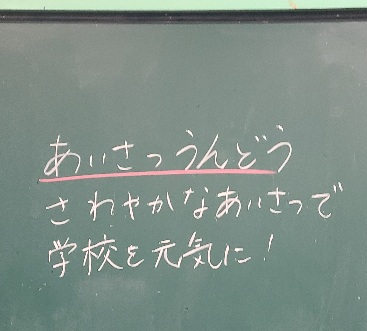 あいさつうんどう
さわやかなあいさつで
学校を元気に!